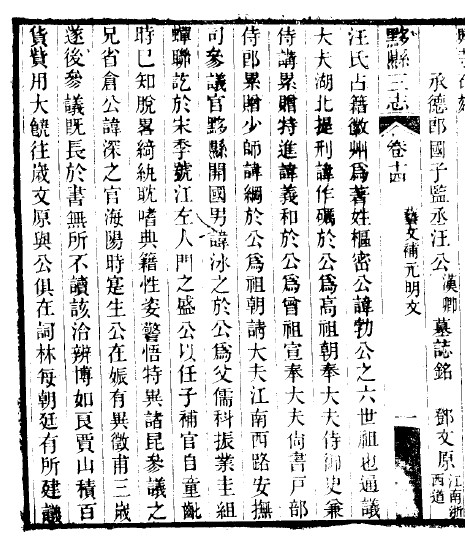 承德郎國子監丞汪公漢卿墓誌銘 鄧文原江南浙西道
黟縣三志 卷十四 藝文補元明文 一
汪氏占籍徽州爲著姓樞密公諱勃公之六世祖也通議
大夫湖北提刑諱作礪於公爲高祖朝奉大夫侍御史兼
侍講累贈特進諱義和於公爲曾祖宣奉大夫尙書戸部
侍郎累贈少師諱綱於公爲祖朝請大夫江南西路安撫
司參議官黟縣開國男諱泳之於公爲父儒科振業圭組
蟬聯訖於宋季號江左人門之盛公以任子補官自童齔
時已知脫畧綺紈耽嗜典籍性姿警悟特異諸昆參議之
兄省倉公諱深之官海陽時寔生公在娠有異徵甫三歲
遂後參議旣長於書無所不讀該洽辨博如良賈山積百
貨費用大饒往歲文原與公俱在詞林每朝廷有所建議